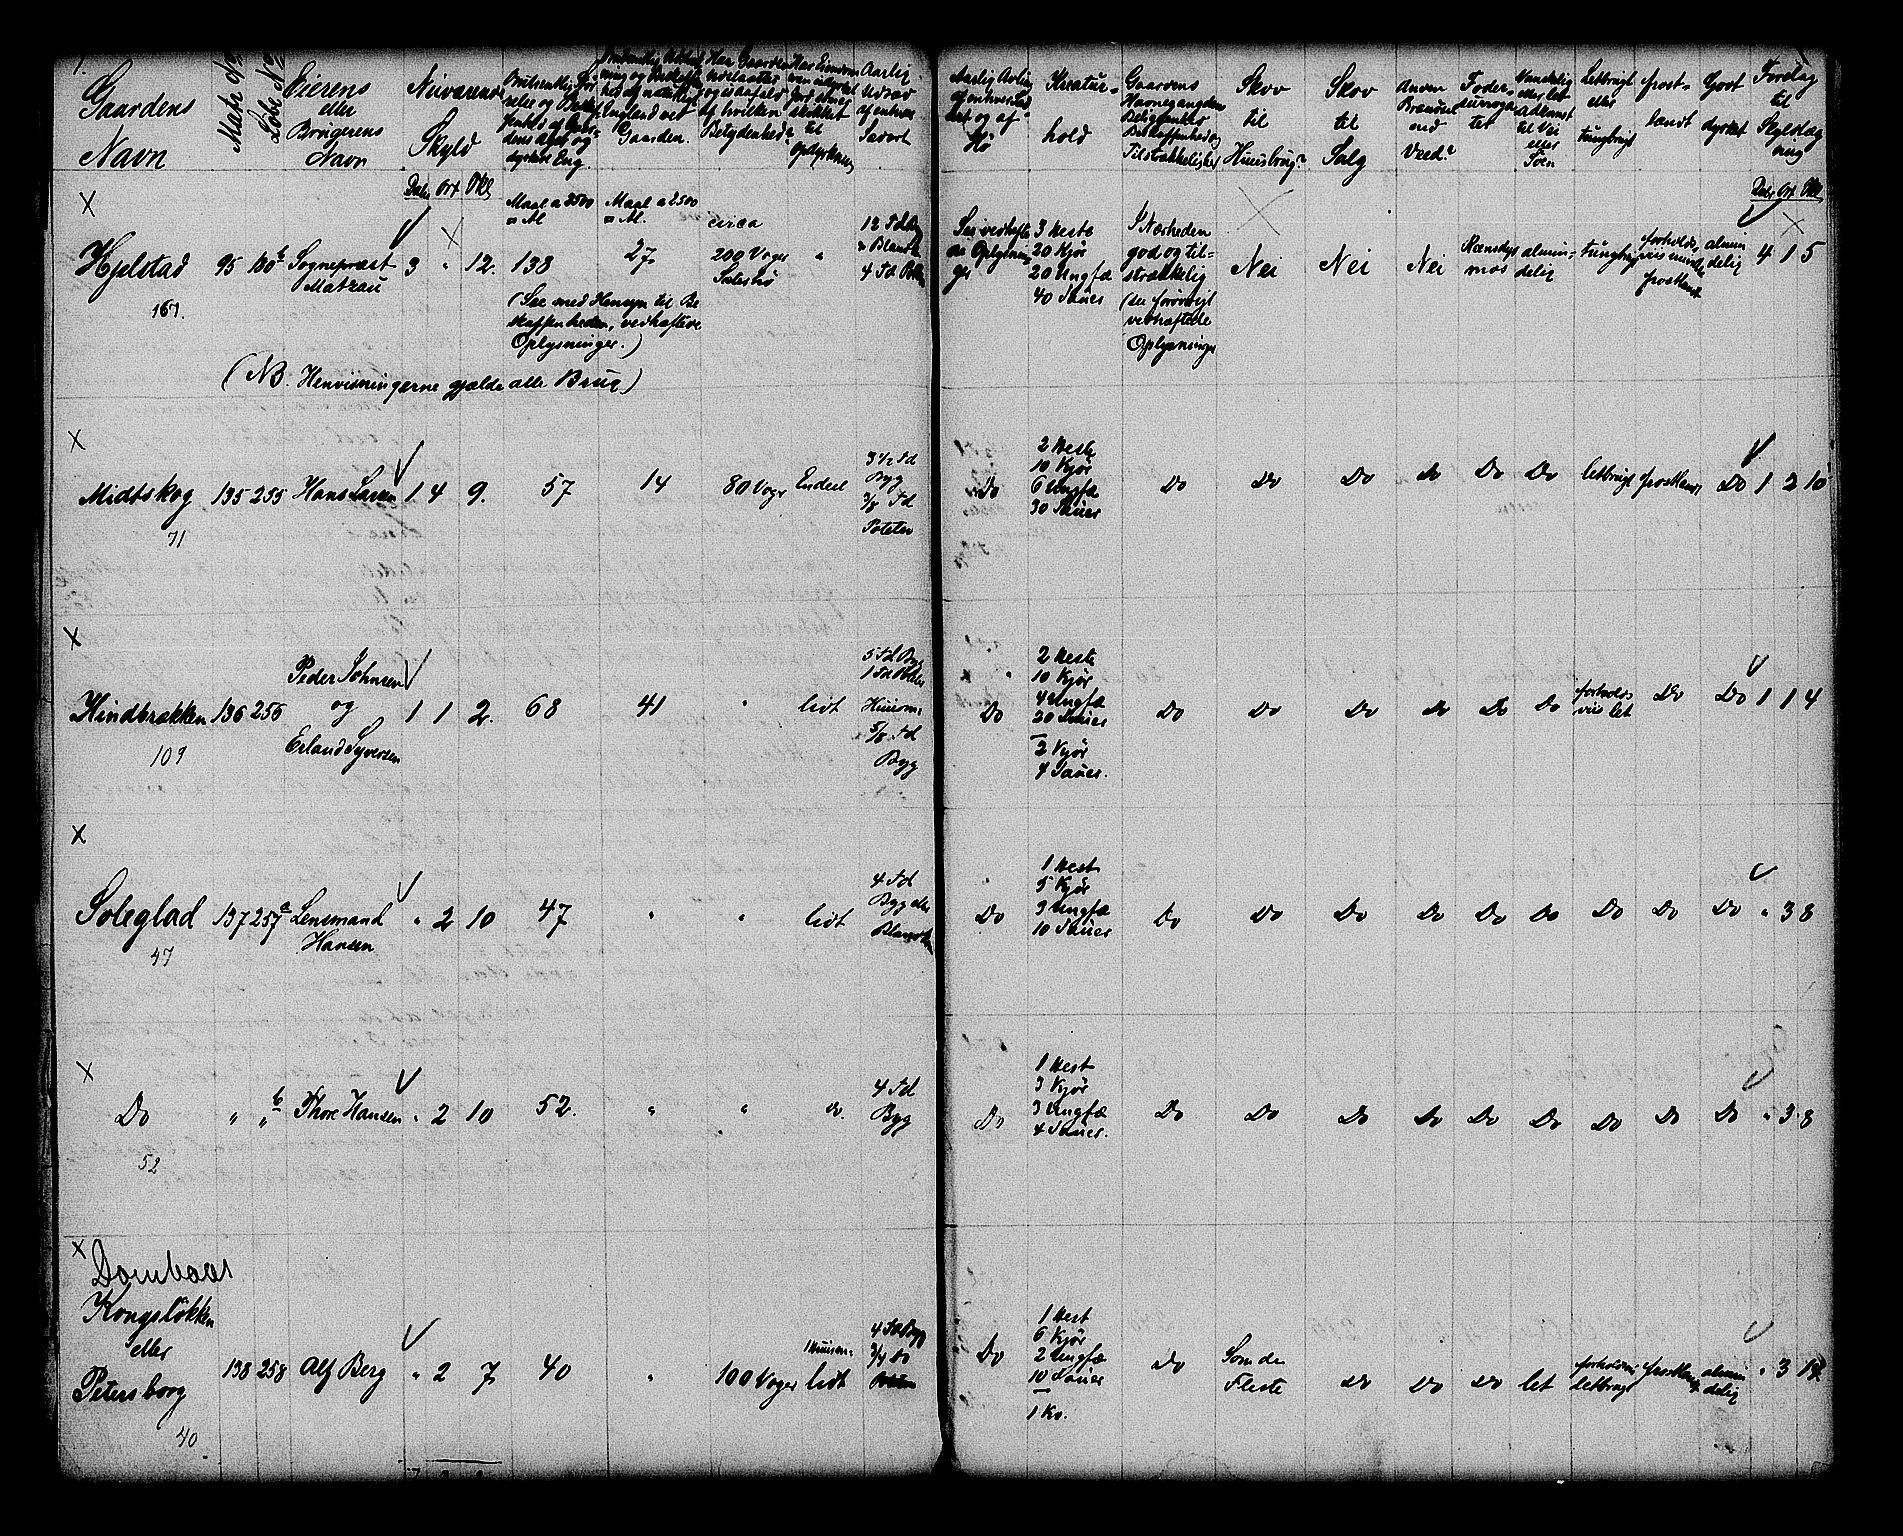 Gaardens Navn | Matr No | Løbe No | Eierens eller Brugerens Navn | Nuværende Skyld | Har Gaarden | Aarlig Udsæd af enhver Sædart
Hø | Kreatur-hold | Gaardens Havnegang dens Beliggenhed Beskaffenhed og Tilstrækkelighed | Skov til Huusbrug? | Skov til Salg | Anden Brændsel end Veed? | Foder | Vei eller Søen | Letbrugt eller tungbrugt | frost-lændt | Godt dyrket | Forslag til Skyldsætning
Daler Ort Skl | Maal a 2500 □ Al. | Maal a 2500 □ Al. | Daler Ort Skl
Hjelstad | 95 | 180 b | Sognepræst Matzau | 3 " 12. | 138 | 27 | circa 200 Voger | " | 12 Td | 4 Td
(See med Hensyn til Beskaffenheden, vedhæftede Oplysninger.)
See vedhæftede Oplysninger | 3 Heste 20 Kjør 20 Ungfæ 40 Sauer | I Nærheden god og tilstrækkelig (see forøvrigt vedhæftede Oplysninger | Nei | Nei | Nei | Rensdyrmos | almindelig | tungbrugt | forholdsviis mindre frostlændt | almindelig | 4 1 5
167.
(NB. Henvisningerne gjælde alle Brug)
Midtskog | 135 | 255 | Hans Larsen | 1 4 9. | 57 | 14 | 80 Voger | Endeel | 3 1/2 Td Byg 3/8 Td Poteter
Do | 2 Heste 10 Kjør 6 Ungfæ 30 Sauer | Do | Do | Do | Do | Do | Do | letbrugt | frostlændt | Do | 1 2 10
71
Hindbrækken | 136 | 256 | Peder Johnsen og Erland Syversen | 1 1 2. | 68 | 41 | " | lidt | 5 Td Byg 1 Td Poteter Huusm: 5/8 Td Byg
Do | 2 Heste 10 Kjør 4 Ungfæ 20 Sauer – 2 Kjør 4 Sauer. | Do | Do | Do | Do | Do | Do | forholdsviis let | Do | Do | 1 1 4
109
Soleglad | 137 | 257 a | Lensmand Hansen | " 2 10 | 47 | " | " | lidt | 4 Td Byg eller Blandkorn
Do | 1 Hest 5 Kjør 3 Ungfæ 10 Sauer | Do | Do | Do | Do | Do | Do | Do | Do | Do | " 3 8
47
Do | " | " b | Thore Hansen | " 2 10 | 52. | " | " | do. | 4 Td Byg
Do | 1 Hest 3 Kjør 3 Ungfæ 4 Sauer. | Do | Do | Do | Do | Do | Do | Do | Do | Do | " 3 8
52
Dombaas
Kongsløkken eller Petersborg | 138 | 258 | Alf Berg | " 2 7. | 40 | " | 100 Voger | lidt | 4 Td Byg 3/4 Do
Do | 1 Hest 6 Kjør 2 Ungfæ 10 Sauer – 1 Ko. | Do | Som de Fleste | Do | Do | Do | let | forholdsviis letbrugt | frostlændt | almindelig | " 3
40